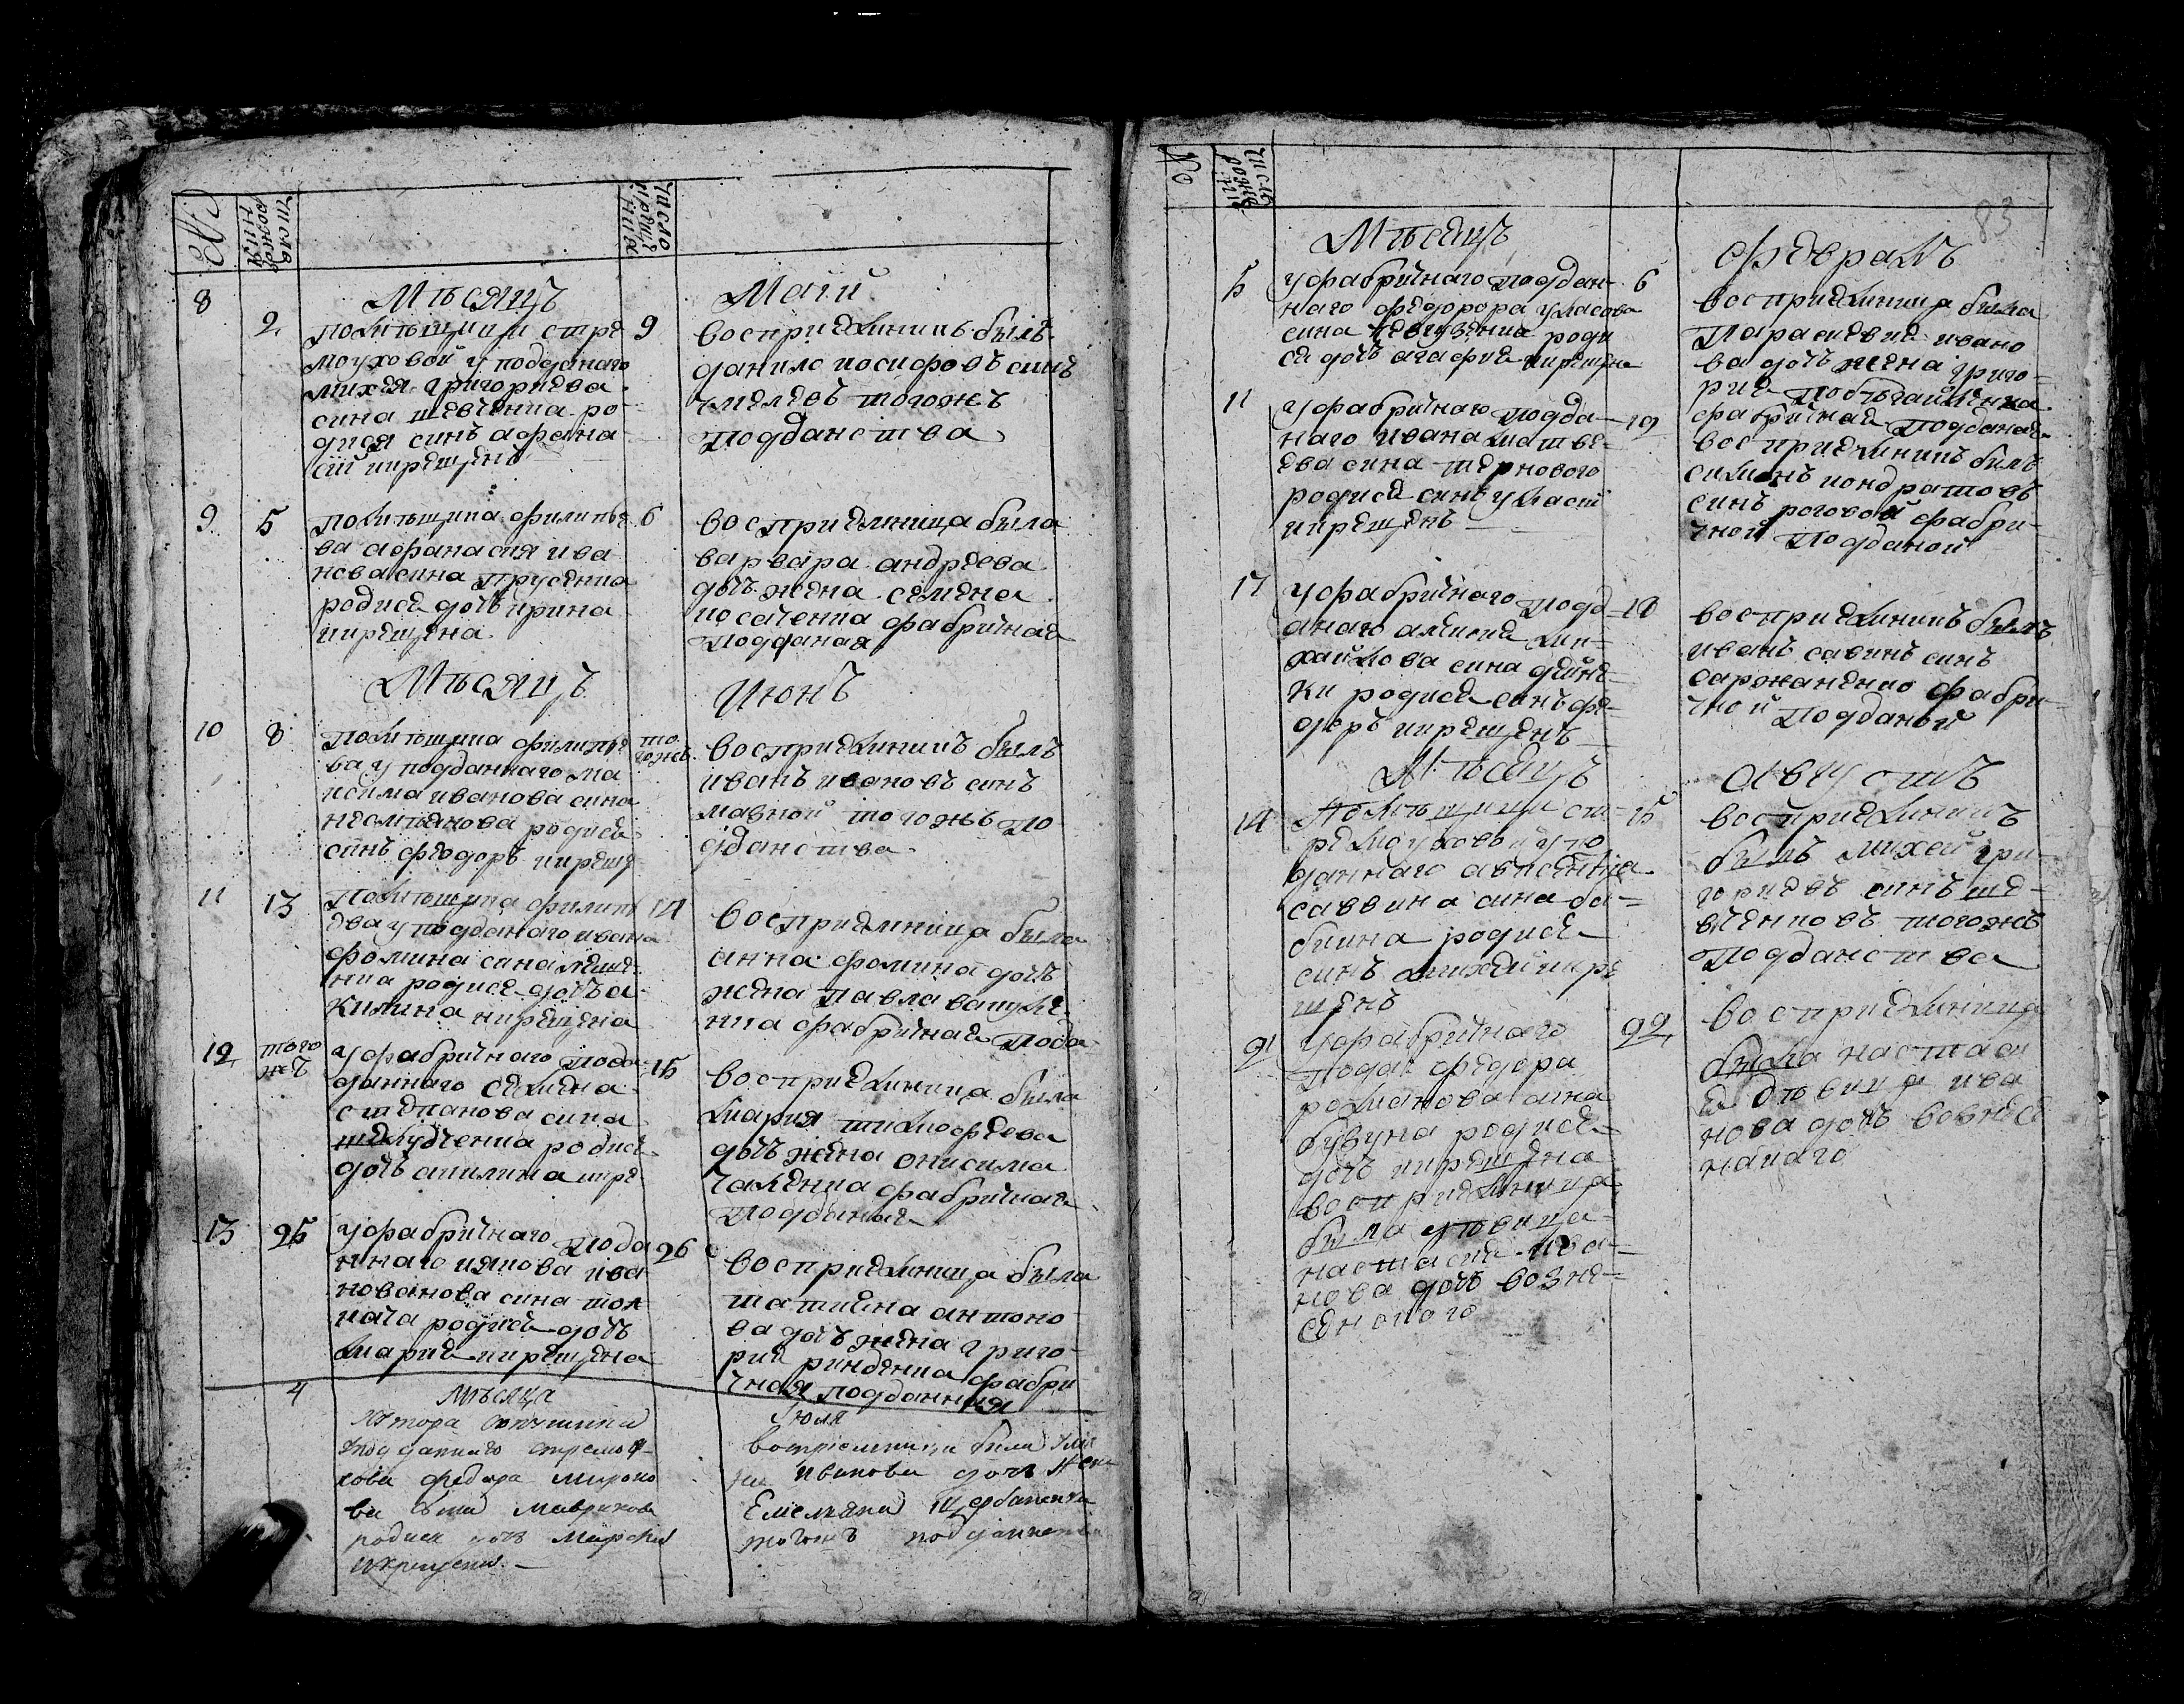 №
число рождения
число крещения
Мѣсяцъ
Маій
8
2
помѣщики стре
9
моуховой у подданаго
михея григориева
сина шевченка ро
дися синъ афана
сій икрещенъ
восприемникъ былъ
данило иосифовъ синъ
тогожъ
подданства
9
5
помѣщика филипье
6
ва афанасия ива
нова сина трусенка
родися дочь ирина
икрещена
восприемница была
варвара андреева
дочь жена семена
косаченка фабричная
подданая
Мѣсяцъ
Июнъ
10
8
помѣщика филипье
тогожъ
ва у подданнаго ма
ксима иванова сина
родися
синъ феодоръ икреще
восприемникъ былъ
иванъ ивановъ синъ
мавной тогожъ по
дданства
11
13
помѣщика филипь
14
ева у подданаго ивана
фомина сина
нка родися дочь а
килина икрещена
восприемница была
анна фомина дочь
жена павла вакуле
нка фабричная подда
12
тогожъ
у фабричнаго подда
15
даннаго семена
степанова сина
шелудченка родися
дочь акилина икре
восприемница была
мария тимофеева
дочь жена онисима
галенка фабричная
подданая
13
25
у фабричнаго подда
26
ннаго якова ива
нованова сина тол
кача родися дочь
мария икрещена
восприемница была
татияна антоно
ва дочь жена григо
рия ринденка фабри
чная подданная
4
мѣсяца
Июля
подданнаго стремоу
хова федора мироно
ва сына маврикова
родися дочь Марфа
икрещена
восприемница была
на иванова дочь жена
Емельяна Щербаненка
тогожъ подданства
№
число рождения
83
Мѣсяцъ
Февралъ
5
у фабричнаго поддан
6
наго феодора уласова
сина родися
дочь агафия икрещена
восприемница была
параскевия ивано
ва дочь жена григо
рия побѣгайленка
фабричная подданая
11
у фабричнаго подда
12
наго ивана матве
ева сина тернового
родися синъ уласій
икрещенъ
восприемникъ былъ
симонъ кондратовъ
синъ роговой фабри
чной подданой
17
у фабричнаго подд
18
анаго алексея ми
хайлова сина дейне
ки родися синъ фе
одоръ икрещенъ
восприемникъ былъ
иванъ савинъ синъ
саржаненко фабри
чной подданой
Мѣсяцъ
августъ
14
помѣщики ст
15
ремоуховой у по
даннаго авксентия
саввина сина ба
бкина родися
синъ михей икре
щенъ
восприемникъ
былъ михей гри
гориевъ синъ ше
вченковъ тогожъ
подданства
21
у фабричнаго
22
подан федора
романова сина
бузуна родися
дочь икрещена
восприемница
была удовица
настасия ива
нова дочь возне
сенского
восприемница
была настаси
я вдовица ива
нова дочь вознесе
нскаго